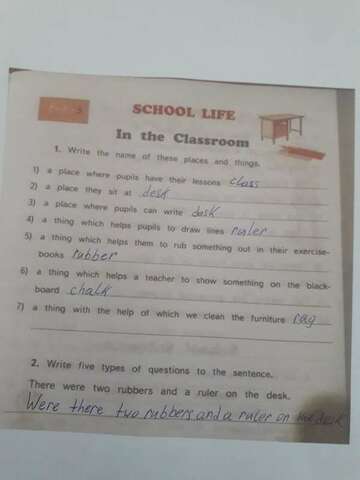 SCHOOL LIFE
In the Classroom
1. Write the name of these places and things.
1) a place where pupils have their lessons class
2) a place they sit at desk
3) a place where pupils can write desk
4) a thing which helps pupils to draw lines ruler
5) a thing which helps them to rub something out in their exercise-
books rubber
6) a thing which helps a teacher to show something on the black-
board chalk
7) a thing with the help of which we clean the furniture rag
2. Write five types of questions to the sentence.
There were two rubbers and a ruler on the desk.
Were there two rubbers and a ruler on the desk